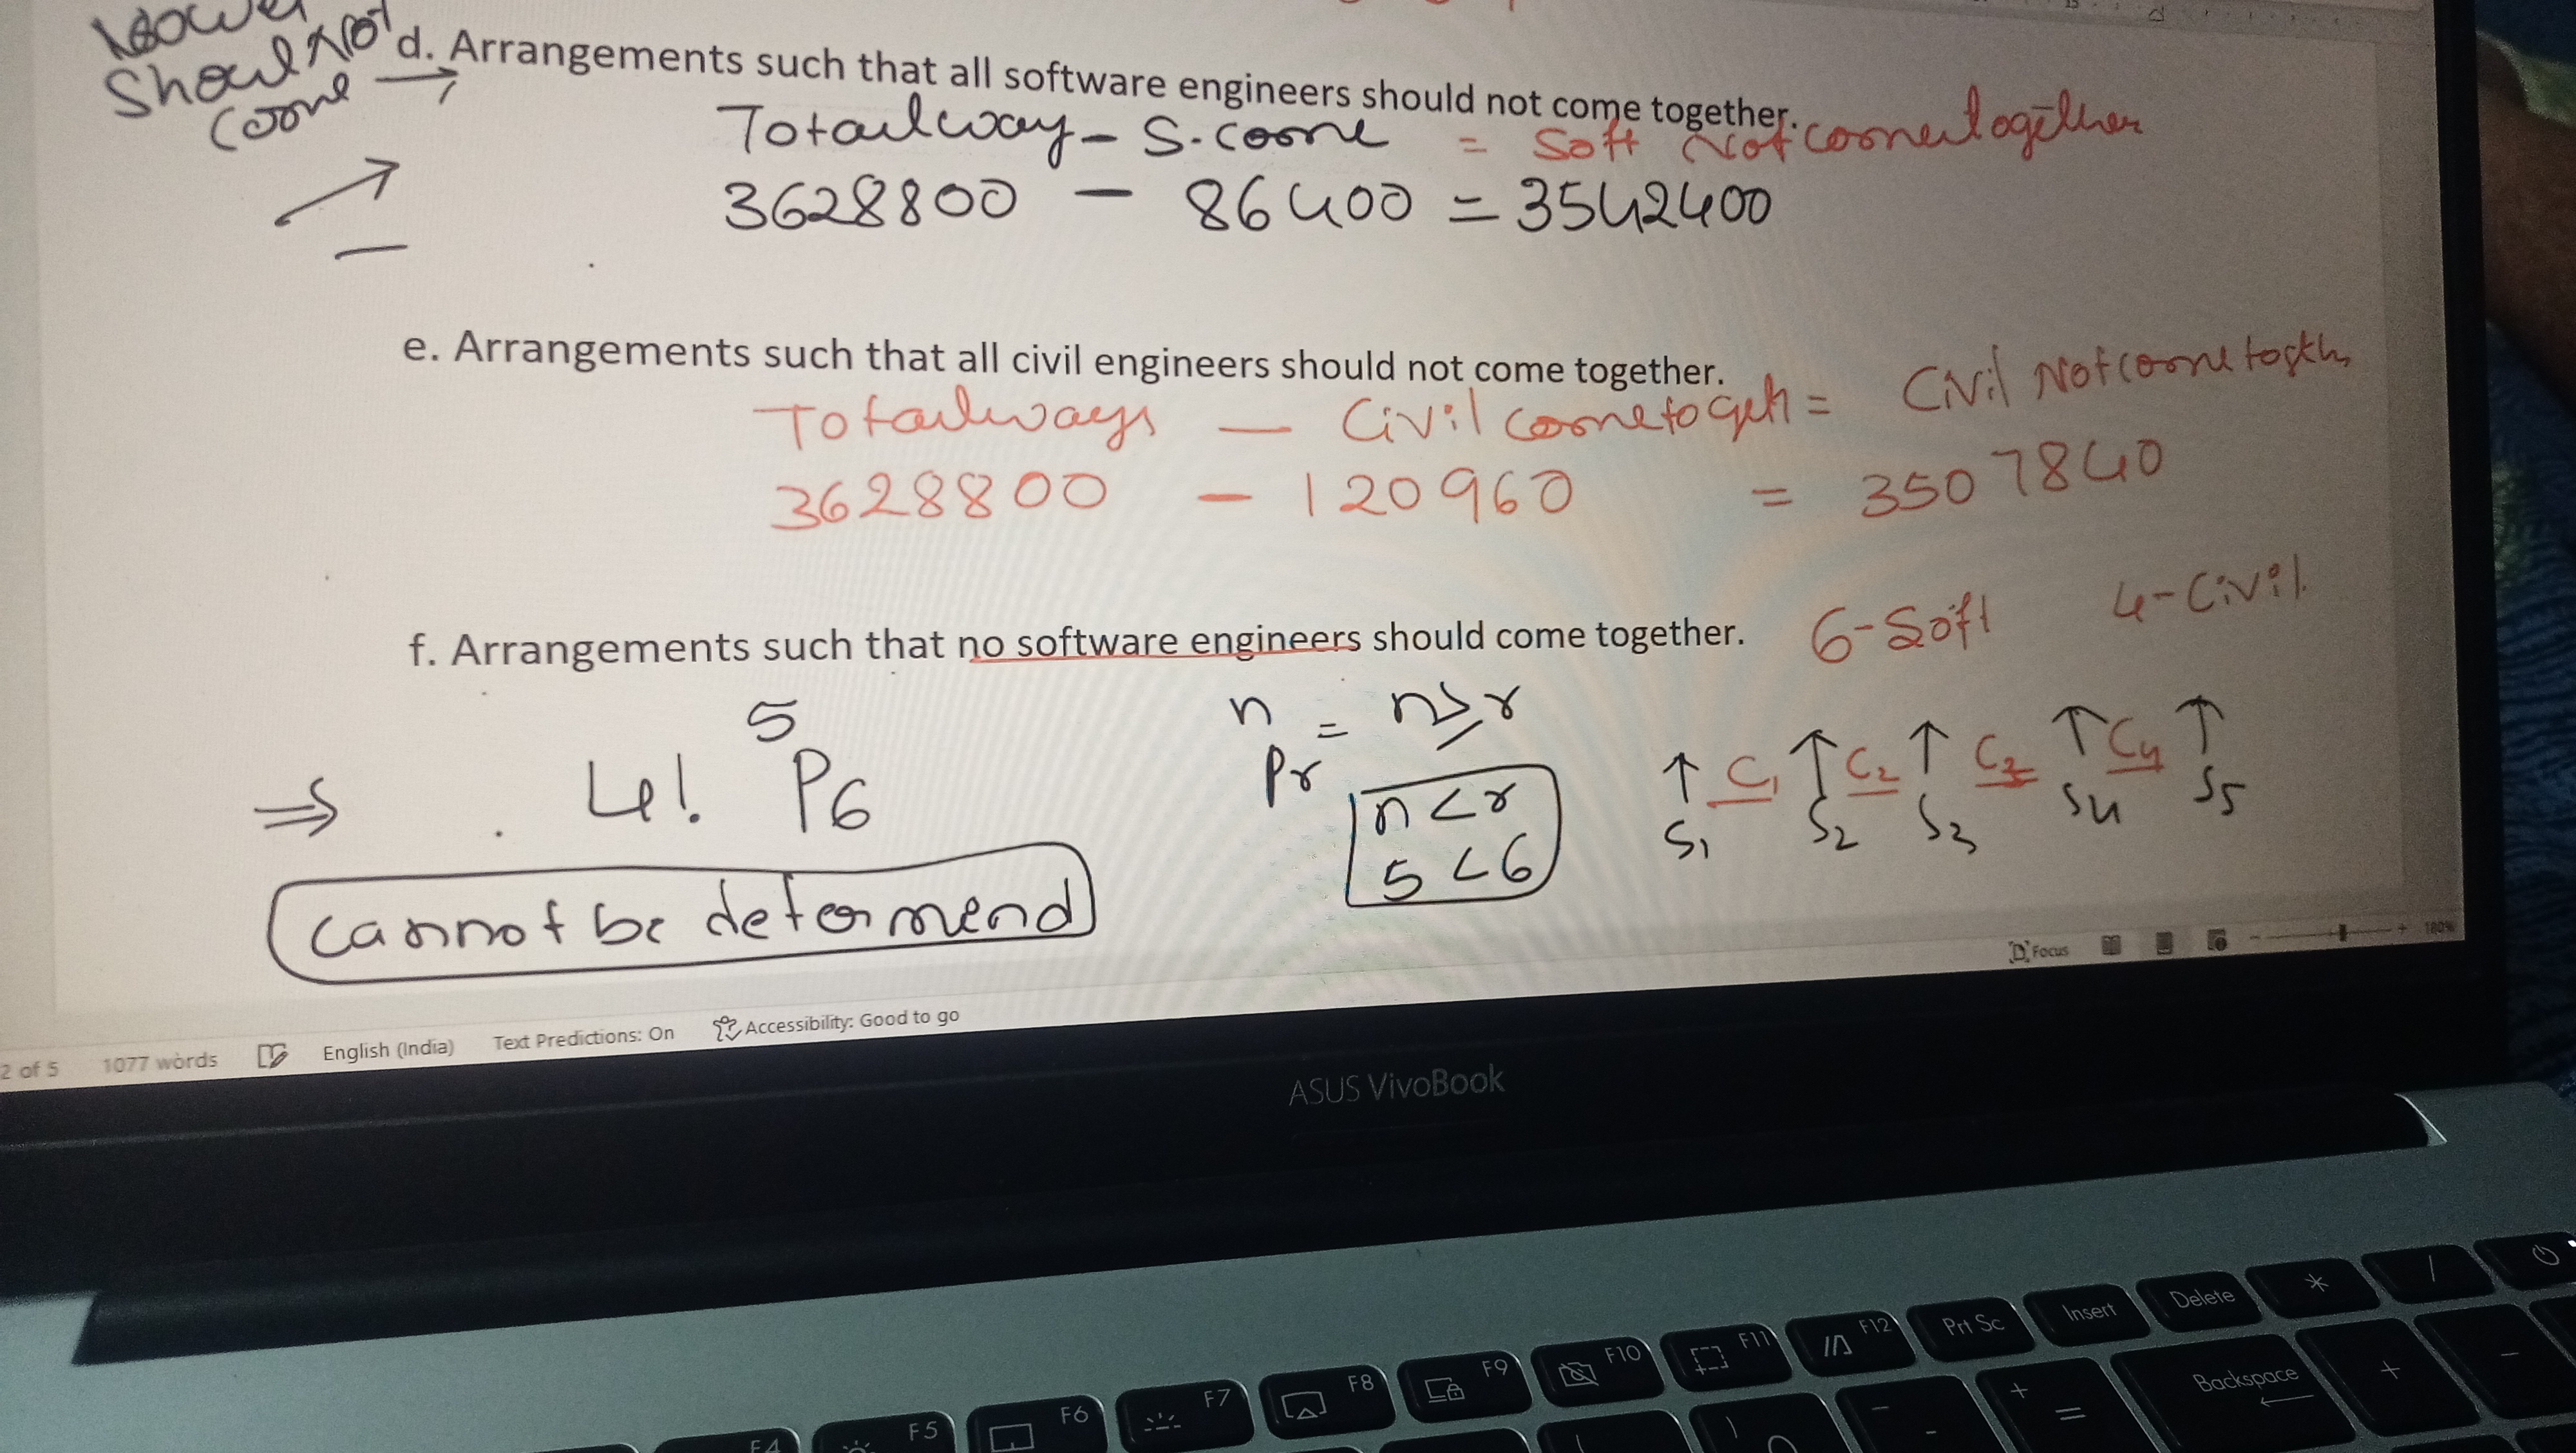 Should Not
come →
d. Arrangements such that all software engineers should not come together.
Total way - S.come = Soft Not come together
3628800 - 86400 = 3542400
e. Arrangements such that all civil engineers should not come together.
Total ways - Civil come togeth = Civil Not come togeth
3628800 - 120960 = 3507840
f. Arrangements such that no software engineers should come together.
6-Soft 4-Civil
⇒ 4! ⁵P6
nPr = n≥r
n<r
5<6
↑ C1 ↑ C2 ↑ C3 ↑ C4 ↑
S1 S2 S3 S4 S5
Cannot be determend
2 of 5 1077 words English (India) Text Predictions: On Accessibility: Good to go Focus - + 180%
ASUS VivoBook
F4 F5 F6 F7 F8 F9 F10 F11 F12 Prt Sc Insert Delete * /
- + = Backspace + -